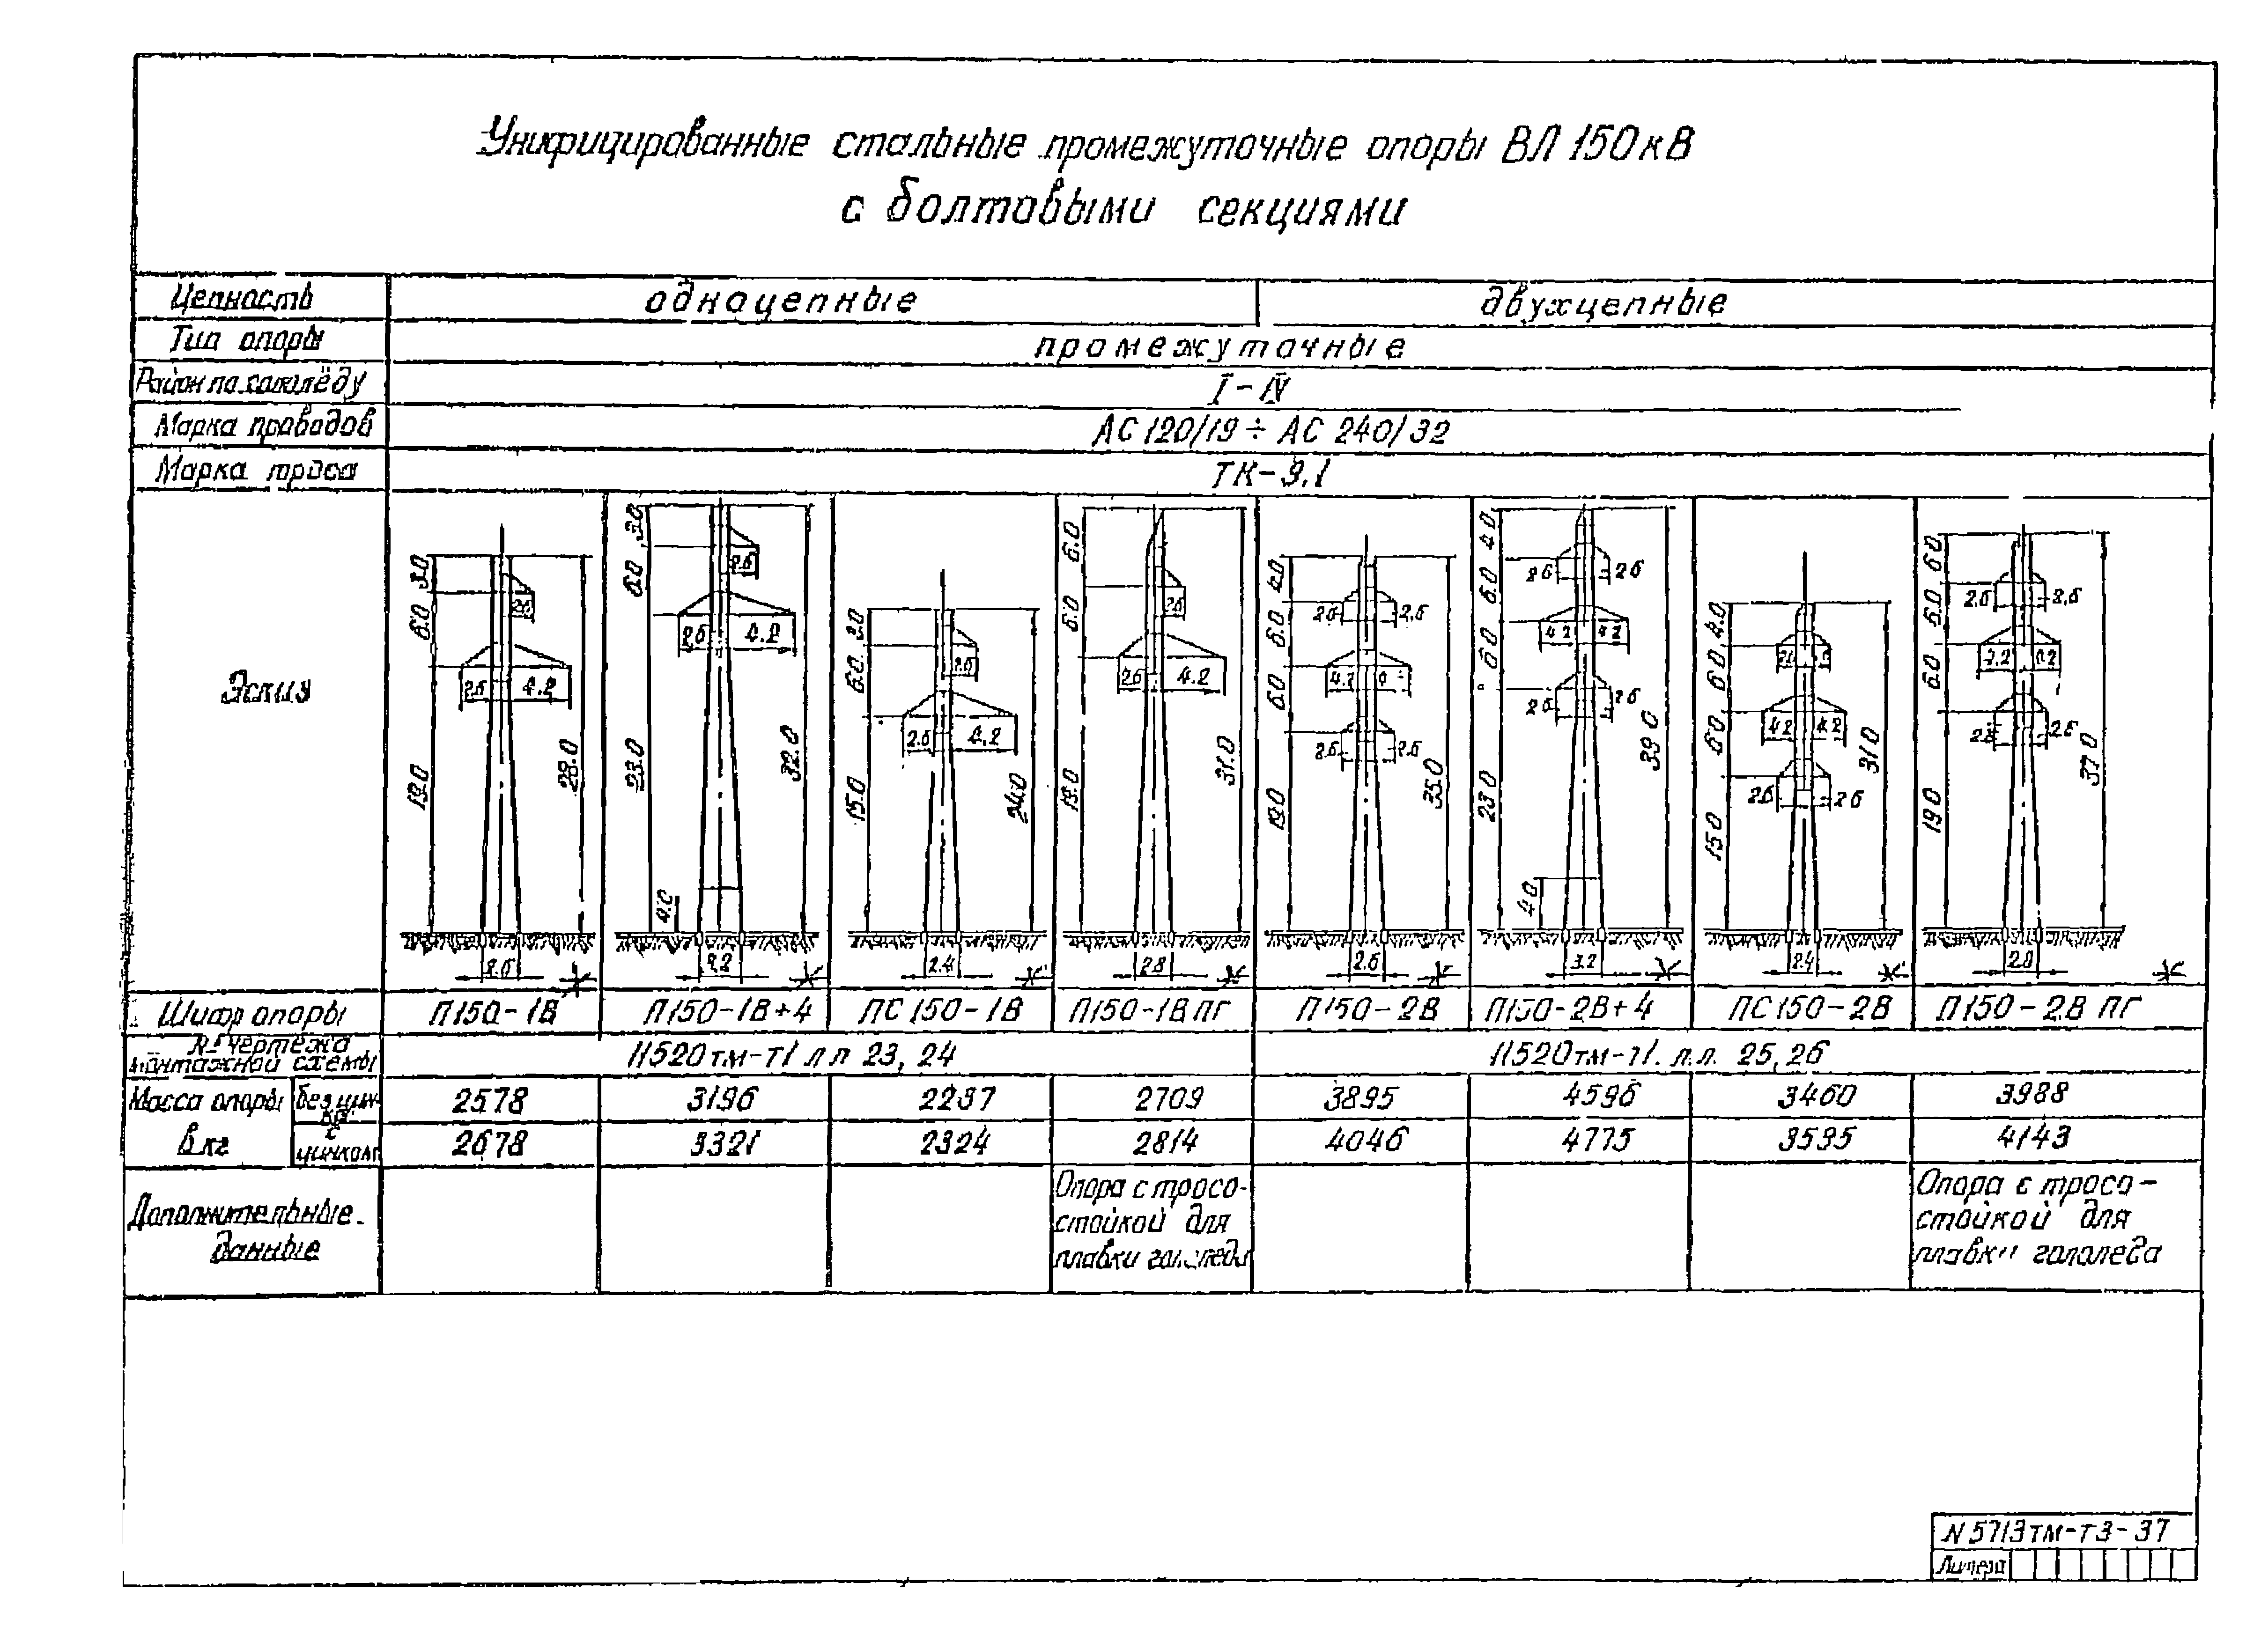 Унифицированные стальные промежуточные опоры ВЛ 150кВ
с болтовыми секциями
Цепность одноцепные двухцепные
Тип опоры промежуточные
Район по гололёду I-IV
Марка проводов АС 120/19 ÷ АС 240/32
Марка троса ТК-9.1
Эскиз
3.0 6.0 19.0 2.6 2.6 4.2 28.0
3.0 6.0 23.0 4.0 2.6 2.6 4.2 32.0 3.2
6.0 15.0 2.6 4.2 24.0 2.4
6.0 6.0 19.0 2.6 2.6 4.2 31.0 2.8
4.0 6.0 6.0 19.0 2.6 2.6 4.2 2.6 2.6 35.0 2.6
4.0 6.0 6.0 23.0 4.0 2.6 2.6 4.2 4.2 2.6 2.6 39.0 3.2
4.0 6.0 6.0 15.0 4.2 4.2 2.6 2.6 31.0 2.4
6.0 6.0 6.0 19.0 2.6 2.6 2.6 37.0
Шифр опоры П150-1В П150-1В+4 ПС150-1В П150-1В ПГ П150-2В П150-2В+4 ПС150-2В П150-2В ПГ
№ чертежа
монтажной схемы 11520тм-т1 л.л 23, 24 11520тм-т1. л.л. 25, 26
Масса опоры без цин-
ка 2578 3196 2237 2709 3895 4596 3460 3988
в кг с
цинком 2678 3321 2324 2814 4046 4775 3595 4143
Дополнительные
данные
Опора с тросо-
стойкой для
плавки гололеда
Опора с тросо-
стойкой для
плавки гололеда
N 5713тм-т3-37
Литера